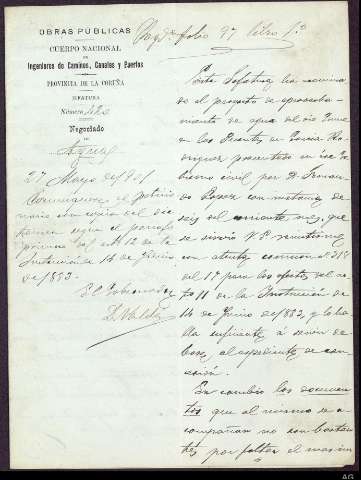 OBRAS PÚBLICAS
CUERPO NACIONAL
DE
Ingenieros de Caminos, Canales y Puertos
PROVINCIA DE LA CORUÑA
JEFATURA
Número 420
Negociado
DE
Aguas
folio 97 libro 1º
27 Mayo de 1901
Comuníquese al peticio
nario con copia del dic
tamen segun el párrafo
primero del art 12 de la
Instrucción de 14 de Junio
de 1883.
El Gobernador
Esta Jefatura há examina
do el proyecto de aprovecha-
miento de agua del rio Eume
en las Puentes de García Ro-
driguez presentado en ese Go-
bierno civil por D. 
con instancia de
seis del corriente mes, que
se sirvió V.S. remitirme
con atento comunicado
del 17 para los efectos del ar
to 11 de la Instrucción de
14 de Junio de 1883, y lo ha
lla suficiente á servir de
base al expediente de con-
cesión.
En cambio los documen
tos que al mismo se a-
compañan no son bastan
tes por faltar el